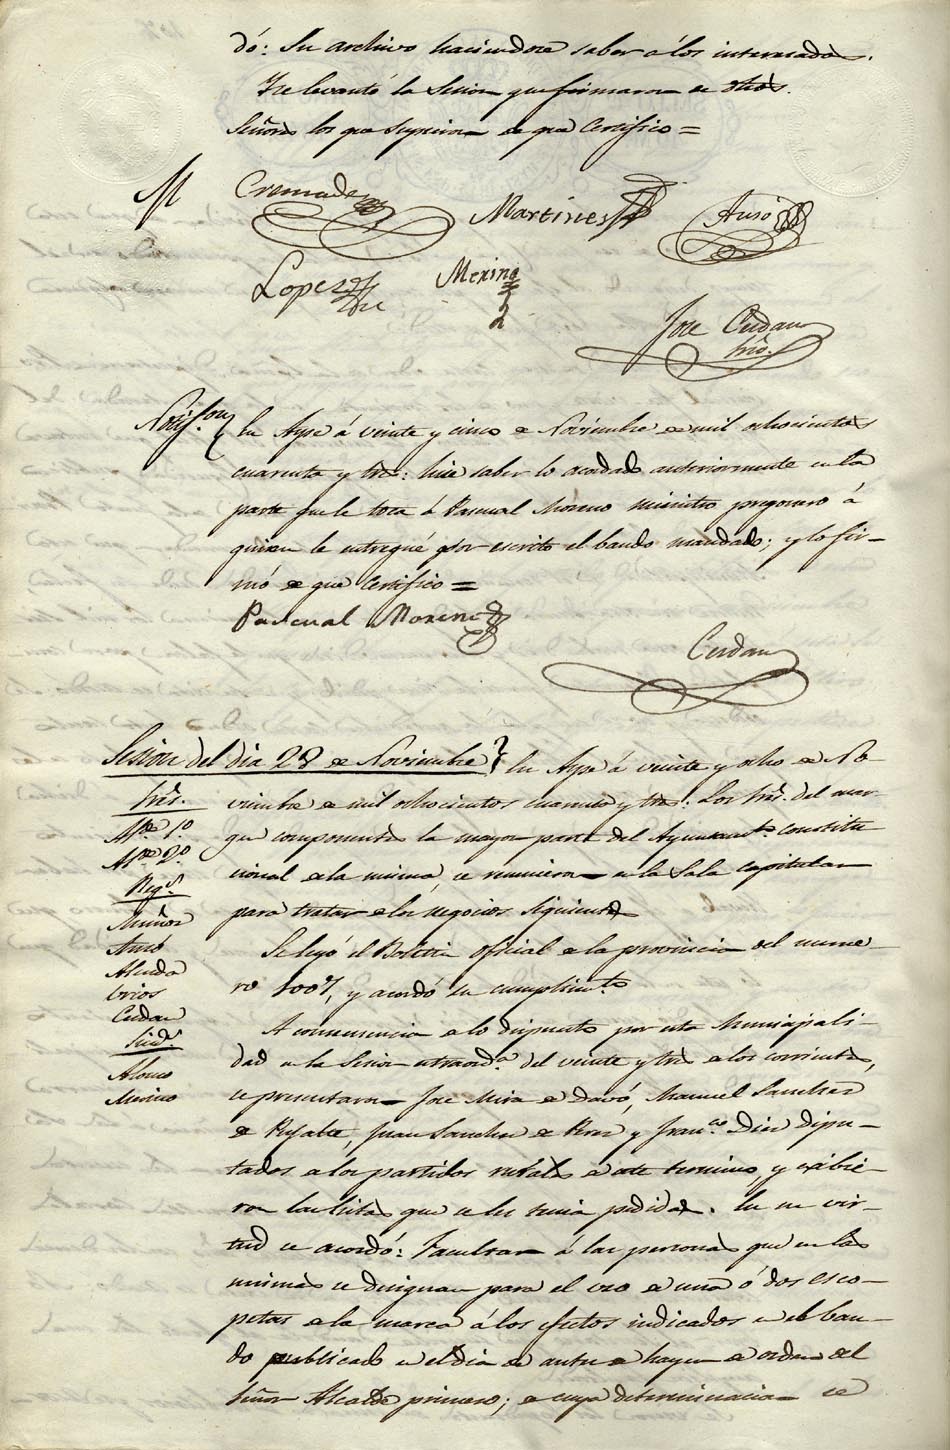 dó: Su archivo haciendose saber á los interesados.
Y se levantó la Sesion que firmaron de dhos.
Señores los que supieron de que Certifico =
M
Cremades
Martines
Ausó
Lopez
Merino
Jose Cerdan
Srio.
Notif.on
En Aspe á veinte y cinco de Noviembre de mil ochocientos
cuarenta y tres: hice saber lo acordado anteriormente en la
parte que le toca á Pascual Moreno ministro pregonero á
quien le entregué por escrito el bando mandado; y lo fir-
mó de que Certifico =
Pascual Moreno
Cerdan
Sesion del dia 28 de Noviembre
En Aspe á veinte y ocho de No-
Sres.
viembre de mil ochocientos cuarenta y tres: Los Sres. del mar-
Al.de 1.o
gen componentes la mayor parte del Ayuntam.to Constitu
Al.de 2.o
cional de la misma, se reunieron en la Sala capitular
Reg.s
para tratar de los negocios siguientes
Muñoz
Ausó
Se leyó el Boletin oficial de la provincia del nume-
Alcuda
ro 1007, y acordó su cumplim.to
brios
Cerdan
A consecuencia de lo dispuesto por esta Municipali-
Sind.s
dad en la Sesion estraord.a del veinte y tres de los corrientes,
Alonso
se presentaron Jose Mira de Davó, Manuel Sanchez
Merino
de Rifalte, Juan Sanchez de Brez y Fran.co Diez dipu-
tados de los partidos rurales de este termino, y exibie-
ron las listas que se les tenia pedidas. En su vir-
tud se acordó: Facultar á las personas que en las
mismas se designan para el uso de una ó dos esco-
petas de la marca á los efectos indicados en el ban-
do publicado en el dia de antes de hayer de orden del
Señor Alcalde primero; de cuya determinacion se